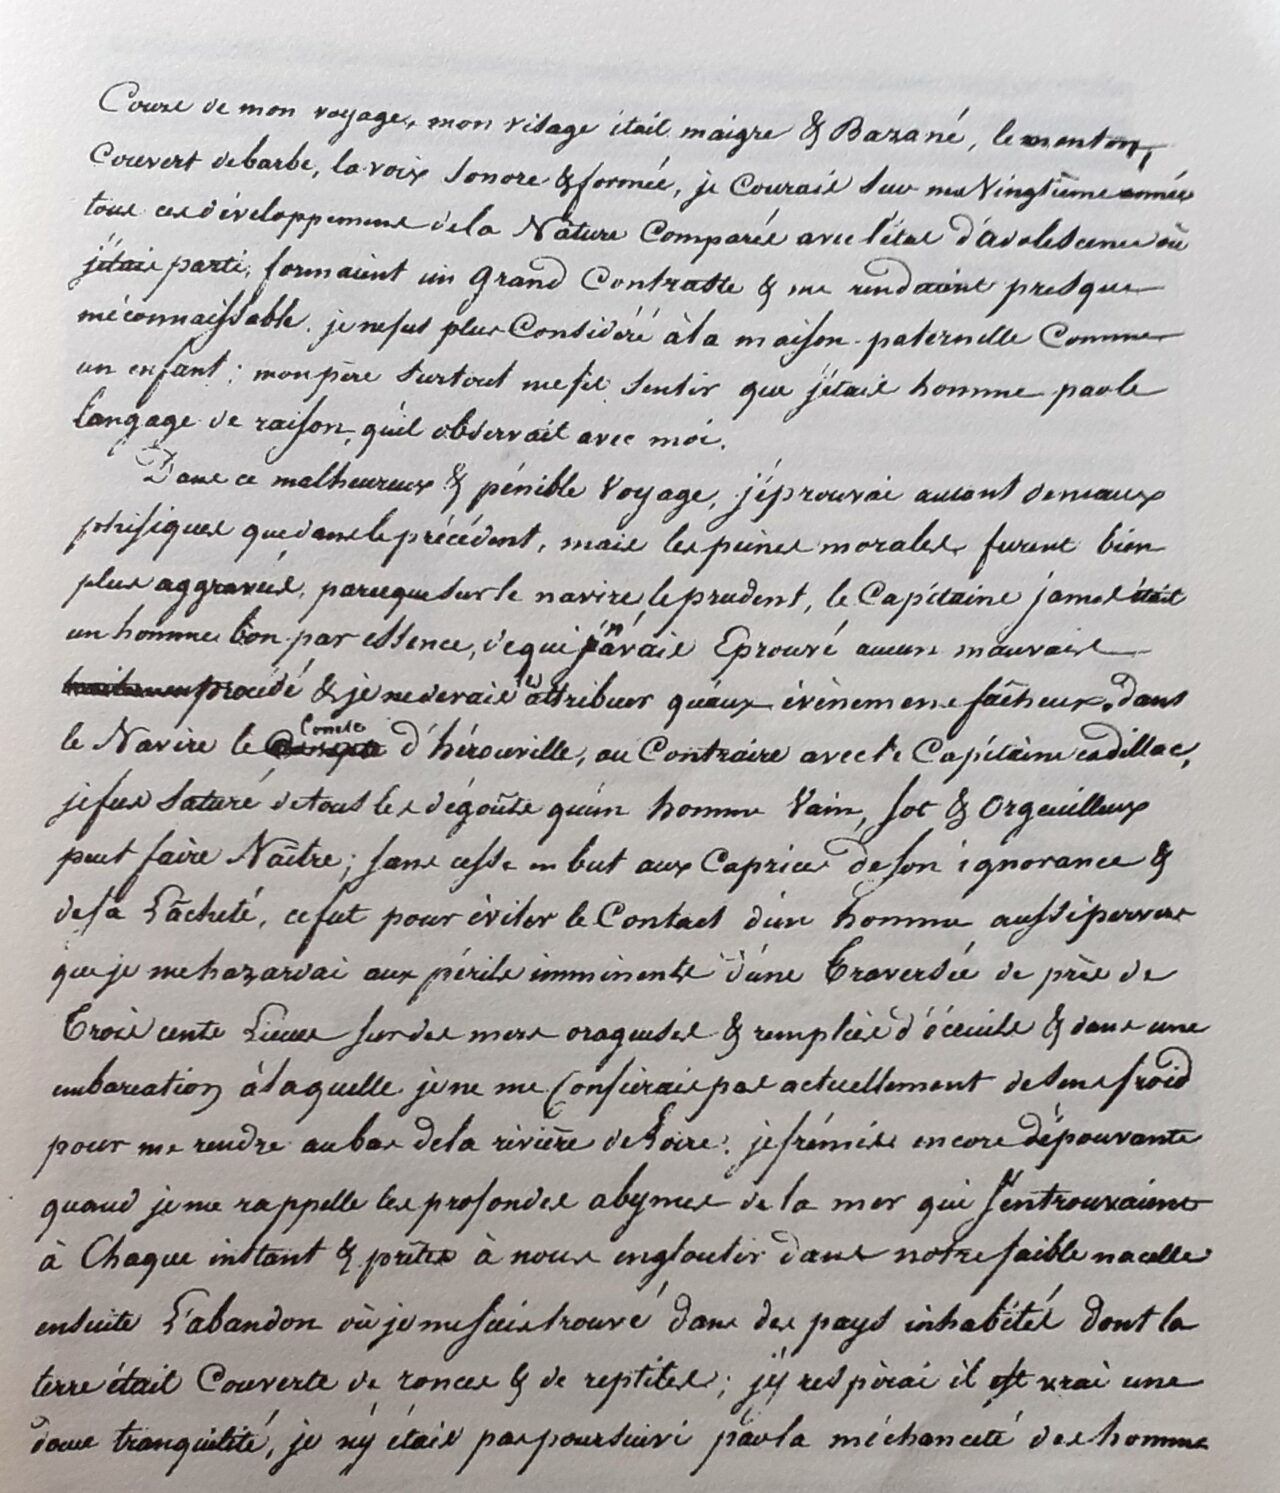 Cours de mon voyage, mon visage était maigre & Bazané, le menton,
Couvert de barbe, la voix sonore & formée, je Courais sur ma Vingtième année
tous ces développemens de la Nature Comparés avec l'état d'adolescence où
j'étais parti, formaient un grand Contraste & me rendaient presque
méconnaissable. je ne fus plus Considéré à la maison paternelle Comme
un enfant ; mon père surtout me fit sentir que j'étais homme par le
langage de raison, qu'il observait avec moi.
Dans ce malheureux & pénible Voyage, j'éprouvai autant de maux
phisiques que dans le précédent, mais les peines morales furent bien
plus aggravées, parceque sur le navire le prudent, le Capitaine james était
un homme bon par essence, de qui je n'avais Eprouvé aucun mauvais
procédé & je ne devais les attribuer qu'aux évènemens fâcheux. Dans
le Navire le Comte d'hérouville, au Contraire avec le Capitaine cadillac,
je fus saturé de tous les dégoûts qu'un homme Vain, sot & Orgueilleux
peut faire Naître ; sans cesse en but aux Caprices de son ignorance &
de sa Lâcheté, ce fut pour éviter le Contact d'un homme aussi pervers
que je me hazardai aux périls imminents d'une Traversée de près de
Trois cents Lieues sur des mers orageuses & remplies d'écueils & dans une
embarcation à laquelle je ne me Confierais pas actuellement de sens froid
pour me rendre au bas de la rivière de Loire. je frémis encore d'épouvante
quand je me rappelle les profondes abymes de la mer qui s'entrouvraient
à Chaque instant & prêtes à nous engloutir dans notre faible nacelle
ensuite L'abandon où je me suis trouvé dans des pays inhabités dont la
terre était Couverte de ronces & de reptiles ; j'y respirai il est vrai une
douce tranquilité, je n'y étais pas poursuivi par la méchanceté des hommes